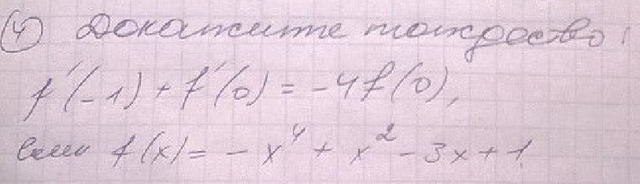 ④ Докажите тождество:
f'(-1) + f'(0) = -4f(0),
если f(x) = -x⁴ + x² - 3x + 1.